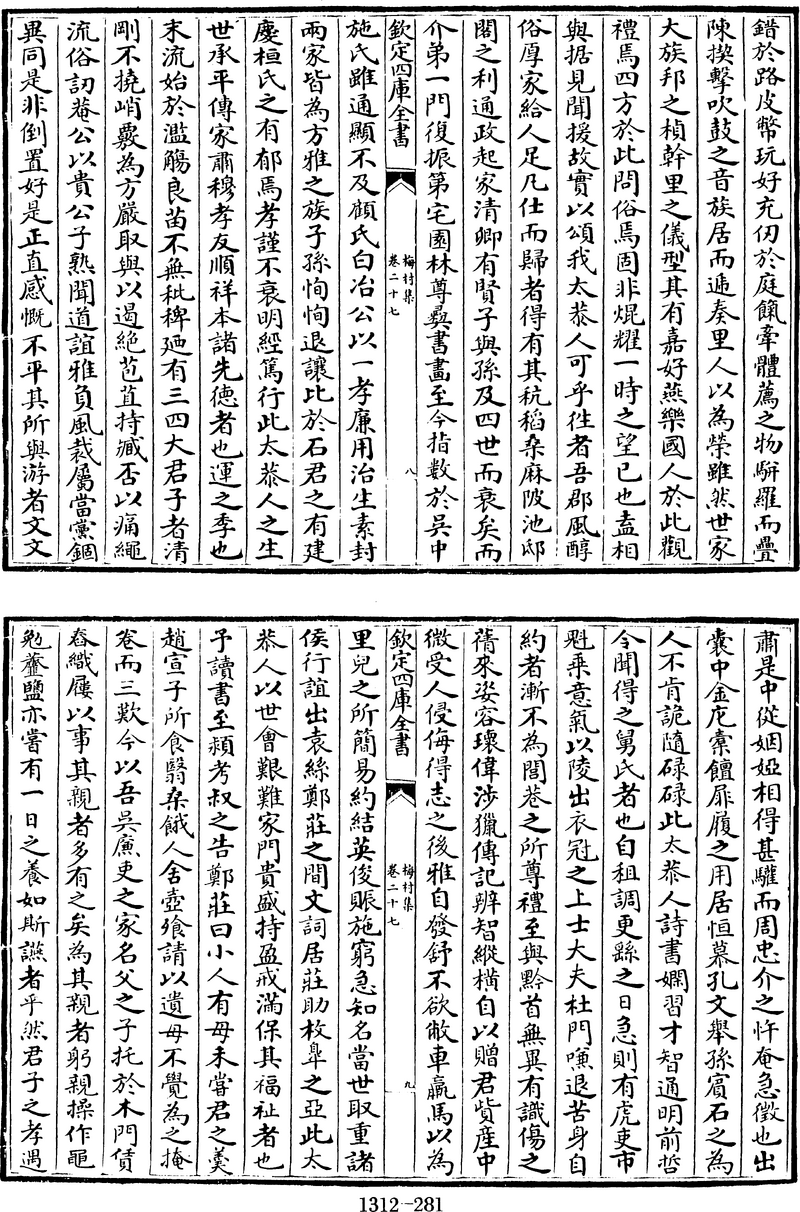 錯於路皮幣玩好充仞於庭餼牽體薦之物駢羅而疊
陳揳擊吹鼓之音族居而遞奏里人以為榮雖然世家
大族邦之楨幹里之儀型其有嘉好燕樂國人於此觀
禮焉四方於此問俗焉固非焜耀一時之望已也盍相
與据見聞援故實以頌我太恭人可乎徃者吾郡風醇
俗厚家給人足凡仕而歸者得有其秔稻桑麻陂池邸
閣之利通政起家清卿有賢子與孫及四世而衰矣而
介弟一門復振第宅園林尊彝書畫至今指數於吳中
欽定四庫全書
梅村集
卷二十七
八
施氏雖通顯不及顧氏白冶公以一孝廉用治生素封
兩家皆為方雅之族子孫恂恂退讓比於石君之有建
慶桓氏之有郁焉孝謹不衰明經篤行此太恭人之生
世承平傳家肅穆孝友順祥本諸先德者也運之季也
末流始於濫觴良苗不無秕稗廼有三四大君子者清
剛不撓峭覈為方嚴取與以遏絕苞苴持臧否以痛繩
流俗訒菴公以貴公子熟聞道誼雅負風裁屬當黨錮
異同是非倒置好是正直感慨不平其所與游者文文
肅是中從姻婭相得甚驩而周忠介之忤奄急徵也出
囊中金庀橐饘屝履之用居恒慕孔文舉孫賓石之為
人不肯詭隨碌碌此太恭人詩書嫻習才智通明前哲
令聞得之舅氏者也自租調更繇之日急則有虎吏市
魁乗意氣以陵出衣冠之上士大夫杜門嗛退苦身自
約者漸不為閭巷之所尊禮至與黔首無異有識傷之
蒨來姿容瓌偉涉獵傳記辨智縱橫自以贈君貲産中
微受人侵侮得志之後雅自發舒不欲敝車羸馬以為
欽定四庫全書
梅村集
卷二十七
九
里兒之所簡易約結英俊賑施窮急知名當世取重諸
侯行誼出袁絲鄭莊之間文詞居莊助枚臯之亞此太
恭人以世會艱難家門貴盛持盈戒滿保其福祉者也
予讀書至潁考叔之告鄭莊曰小人有母未嘗君之羹
趙宣子所食翳桑餓人舍壺飱請以遺母不覺為之掩
卷而三歎今以吾吳亷吏之家名父之子托於木門賃
舂織屨以事其親者多有之矣為其親者躬親操作黽
勉虀鹽亦嘗有一日之養如斯讌者乎然君子之孝遇
1312-281